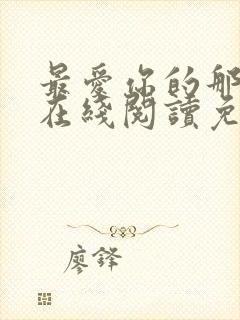 最愛你的那
在綫閱讀免
廖鋒